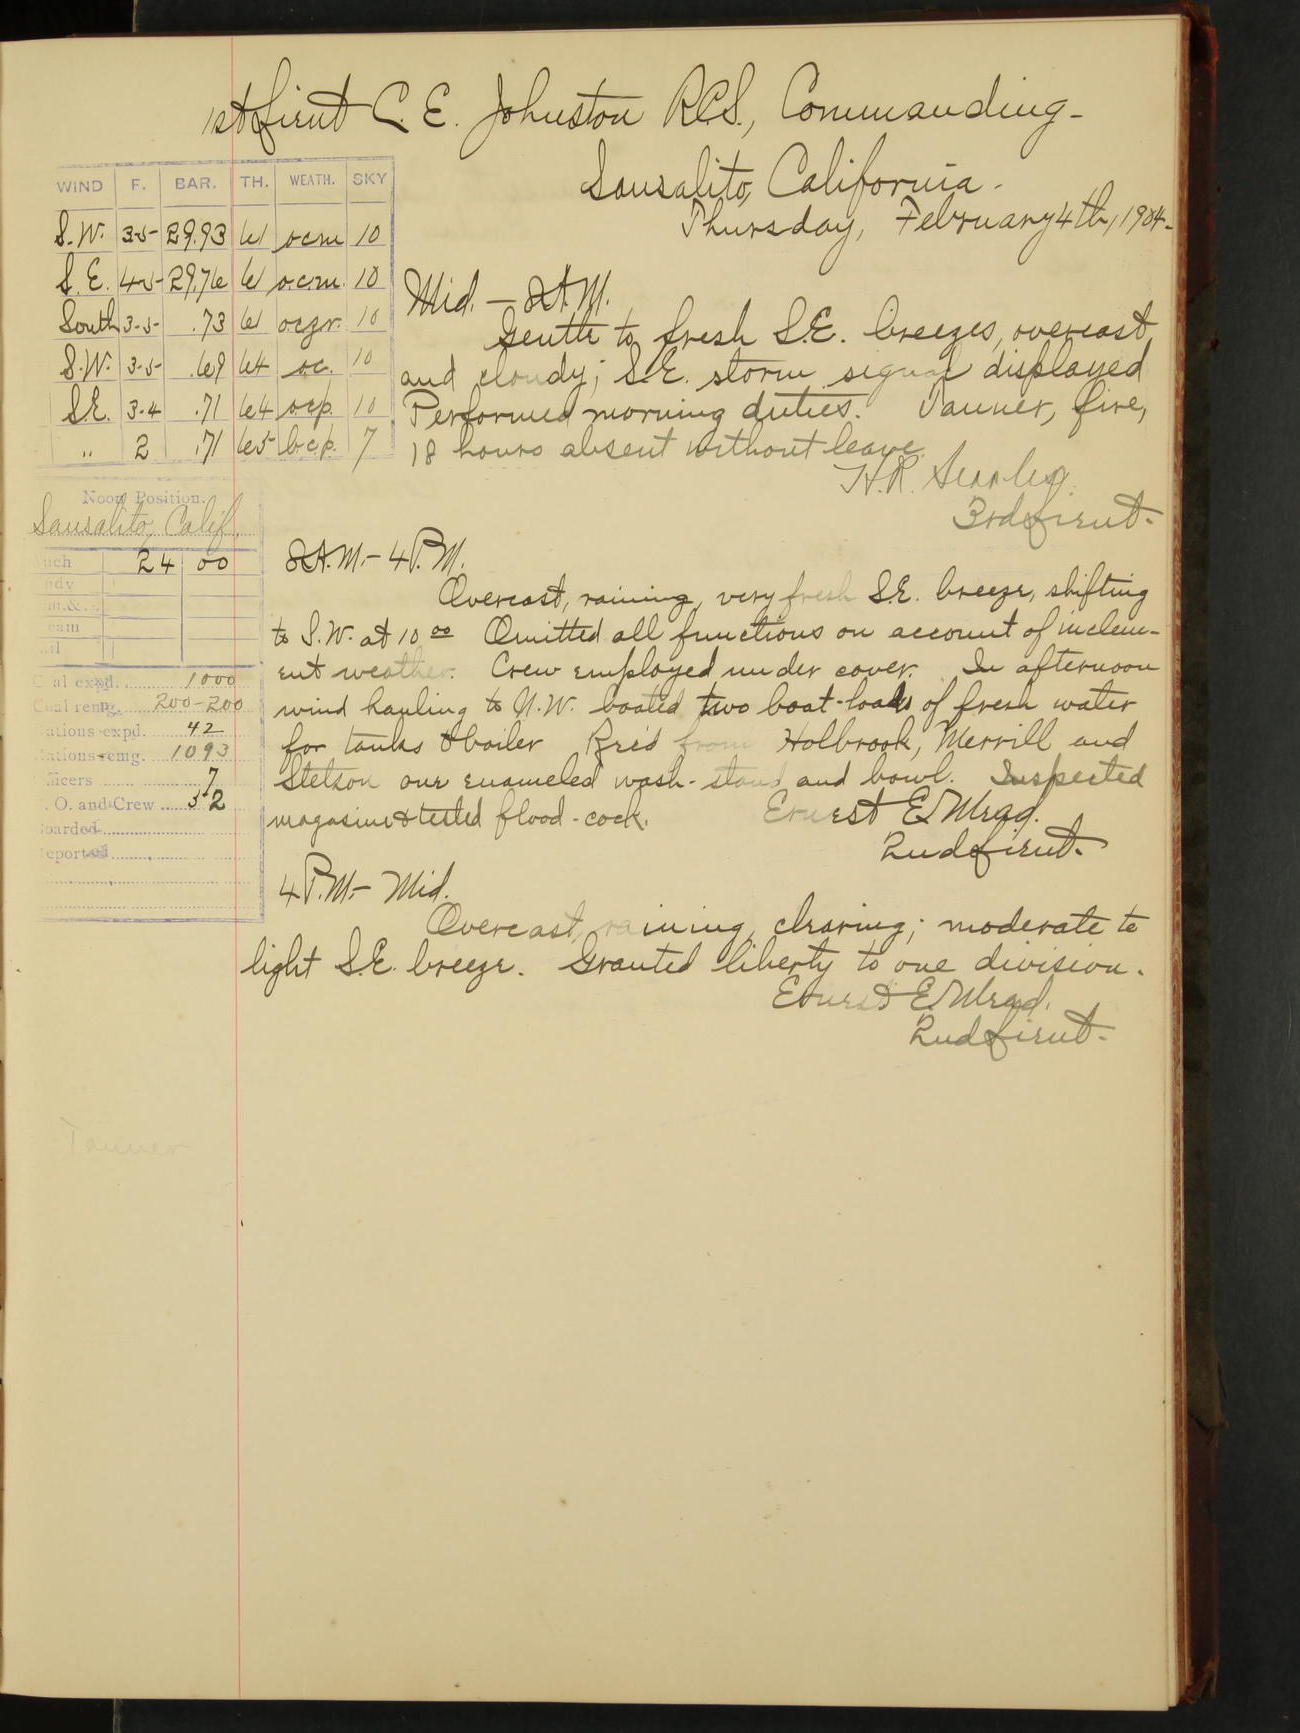 1st Lieut C. E. Johnston R.C.S., Commanding-
Sausalito, California-
Thursday, February 4th, 1904-
WIND F. BAR. TH. WEATH. SKY
S.W. 3-5- 29.93 61 ocm 10
S.E. 4-5- 29.76 61 o.c.m. 10
South 3-5- .73 61 ocgr. 10
S.W. 3-5- .69 64 oc. 10
S.E. 3-4 .71 64 ocp. 10
" 2 .71 65 bcp. 7
Noon Position.
Sausalito, Calif.
24 00
Coal expd. 1000
Coal remg. 200-200
ations expd. 42
ations remg. 1093
ficers 7
. O. and Crew 32
oarded
eported
Tanner
Mid. - 8A.M.
Gentle to fresh S.E. breezes, overcast
and cloudy; S.E. storm signal displayed
Performed morning duties. Tanner, fire,
18 hours absent without leave.
H.R. Searles.
3rd Lieut.
8A.M. - 4P.M.
Overcast, raining, very fresh S.E. breeze, shifting
to S.W. at 10 00 Omitted all functions on account of inclem-
ent weather. Crew employed under cover. In afternoon
wind hauling to N.W. boated two boat-loads of fresh water
for tanks & boiler Rec'd from Holbrook, Merrill and
Stetson one enameled wash-stand and bowl. Inspected
magazine & tested flood-cock.
Ernest E. Mead.
2nd Lieut.
4P.M. - Mid.
Overcast, raining, clearing; moderate to
light S.E. breeze. Granted liberty to one division.
Ernest E. Mead.
2nd Lieut.